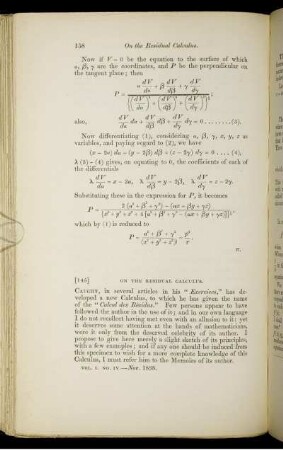 158 On the Residual Calculus.
Now if V = 0 be the equation to the surface of which
α, β, γ are the coordinates, and P be the perpendicular on
the tangent plane; then
P = (α dV/dα + β dV/dβ + γ dV/dγ) / {(dV/dα)² + (dV/dβ)² + (dV/dγ)²}^½ ;
also, dV/dα dα + dV/dβ dβ + dV/dγ dγ = 0 ........ (3).
Now differentiating (1), considering α, β, γ, x, y, z as
variables, and paying regard to (2), we have
(x − 2α) dα + (y − 2β) dβ + (z − 2γ) dγ = 0 .... (4),
λ (3) − (4) gives, on equating to 0, the coefficients of each of
the differentials
λ dV/dα = x − 2α, λ dV/dβ = y − 2β, λ dV/dγ = z − 2γ.
Substituting these in the expression for P, it becomes
which by (1) is reduced to
[146] ON THE RESIDUAL CALCULUS.
CAUCHY, in several articles in his "Exercises," has de-
veloped a new Calculus, to which he has given the name
of the "Calcul des Résidus." Few persons appear to have
followed the author in the use of it; and in our own language
I do not recollect having met even with an allusion to it; yet
it deserves some attention at the hands of mathematicians,
were it only from the deserved celebrity of its author. I
propose to give here merely a slight sketch of its principles,
with a few examples; and if any one should be induced from
this specimen to wish for a more complete knowledge of this
Calculus, I must refer him to the Memoirs of its author.
VOL. I. NO. IV.—Nov. 1838.